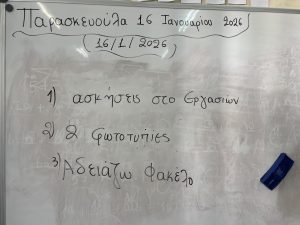 Παρασκευούλα 16 Ιανουαρίου 2026
(16/1/2026)
1) ασκήσεις στο Εργασιών
2) 2 φωτοτυπίες
3) Αδειάζω Φακέλο